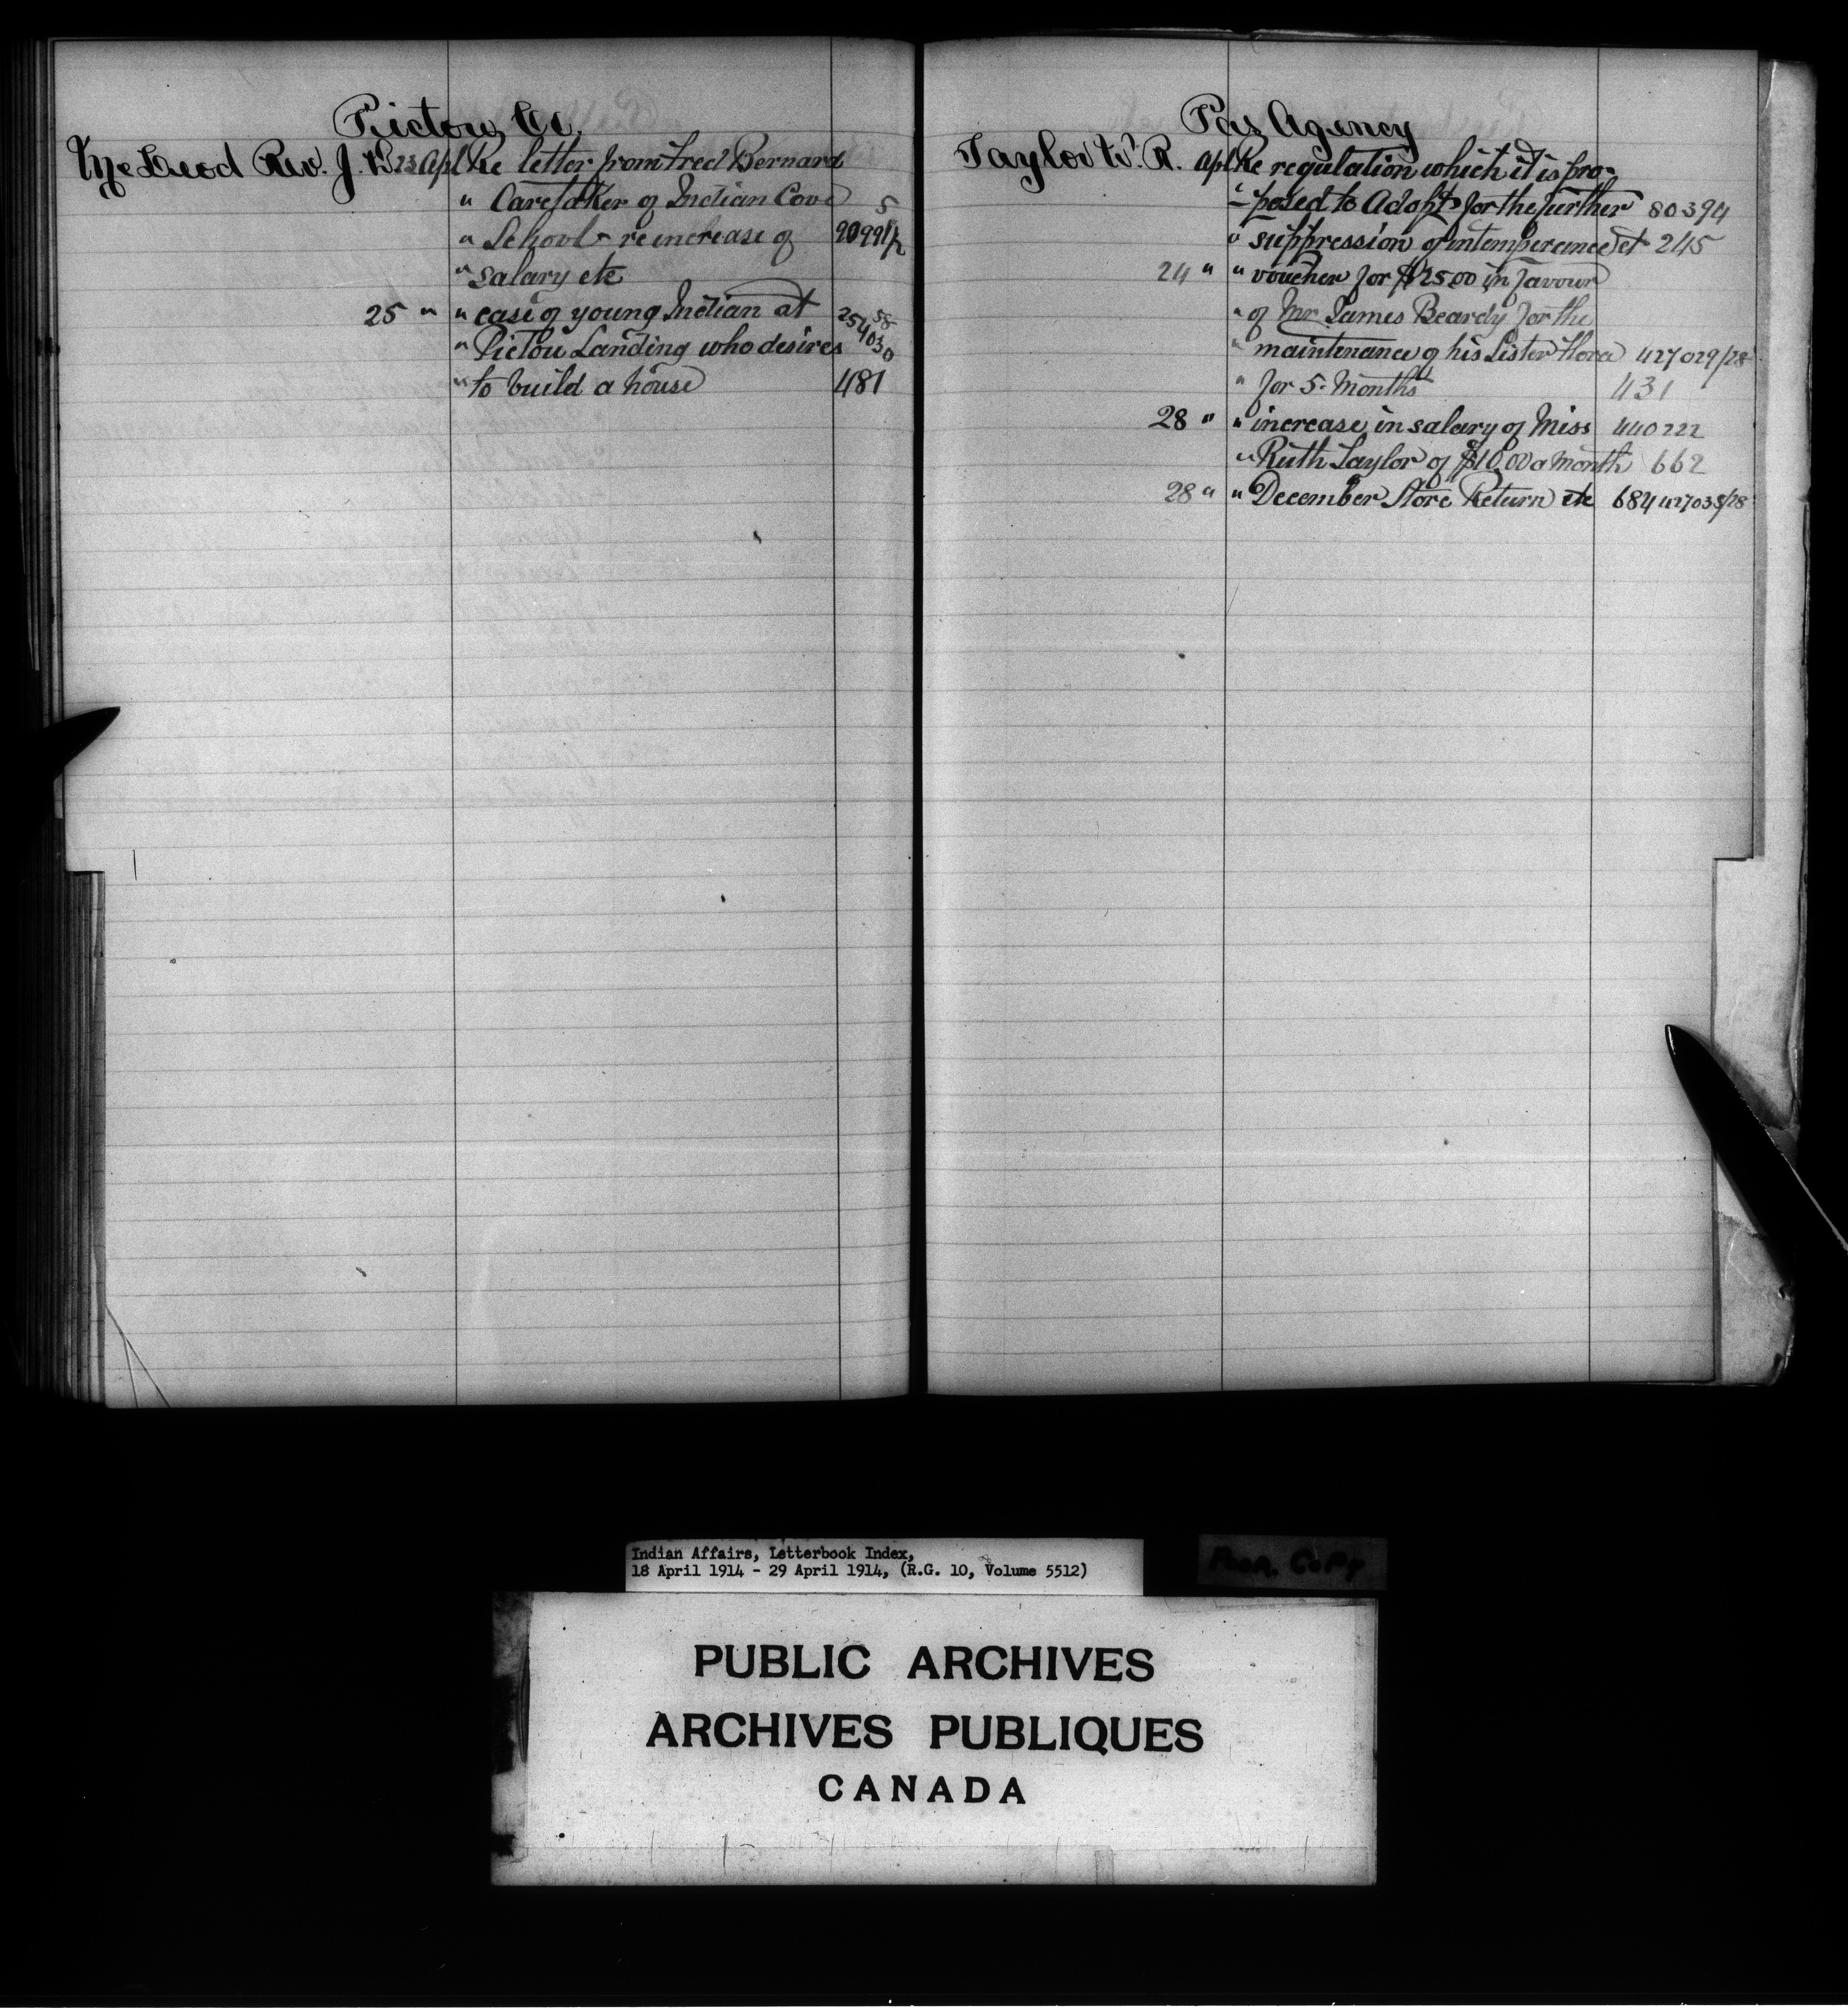 Pictou Co.
McLeod Rev. J. D. 23 Apl Re letter from Fred Bernard
" Caretaker of Indian Cove 5
" School - re increase of 90991/2
" salary etc
25 " " case of young Indian at 25458
" Pictou Landing who desires 4030
" to build a house 481
Pas Agency
Taylor W. R. Apl Re regulation which it is pro-
" posed to Adopt for the further 80394
" suppression of intemperance et 245
24 " " voucher for $25.00 in favour
" of Mr. James Beardy for the
" maintenance of his Sister Flora 427029/28
" for 5 Months 431
28 " " increase in salary of Miss 440222
" Ruth Taylor of $10.00 a month 662
28 " " December Store Return etc 684 427035/28
Indian Affairs, Letterbook Index,
18 April 1914 - 29 April 1914, (R.G. 10, Volume 5512)
Poor Copy
PUBLIC ARCHIVES
ARCHIVES PUBLIQUES
CANADA